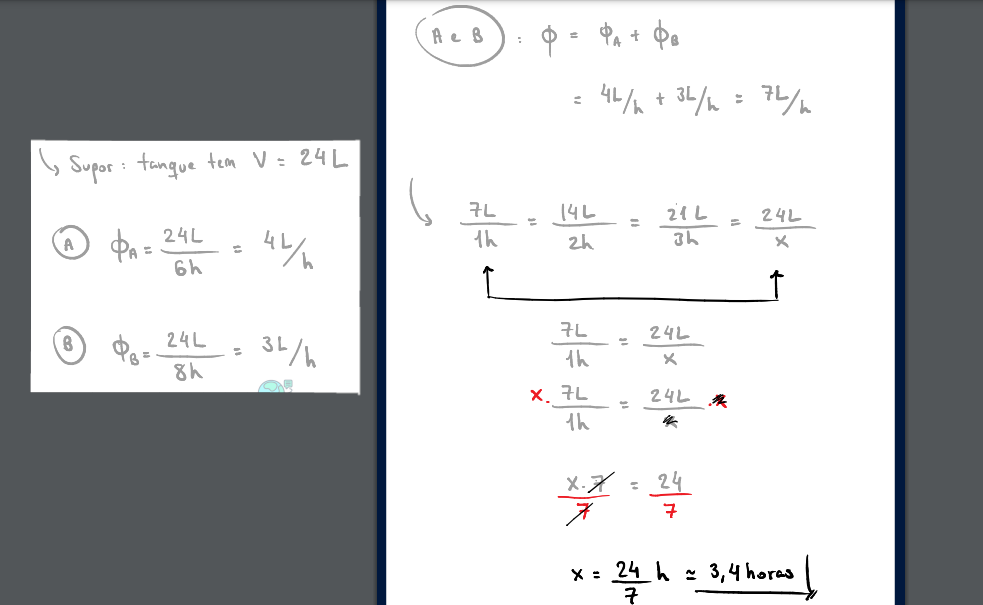 ↳ Supor: tanque tem V = 24L
A ϕA = 24L/6h = 4L/h
B ϕB = 24L/8h = 3L/h
A e B : ϕ = ϕA + ϕB
= 4L/h + 3L/h = 7L/h
↳ 7L/1h = 14L/2h = 21L/3h = 24L/x
7L/1h = 24L/x
x. 7L/1h = 24L/x .x
x.7/7 = 24/7
x = 24/7 h ≃ 3,4 horas